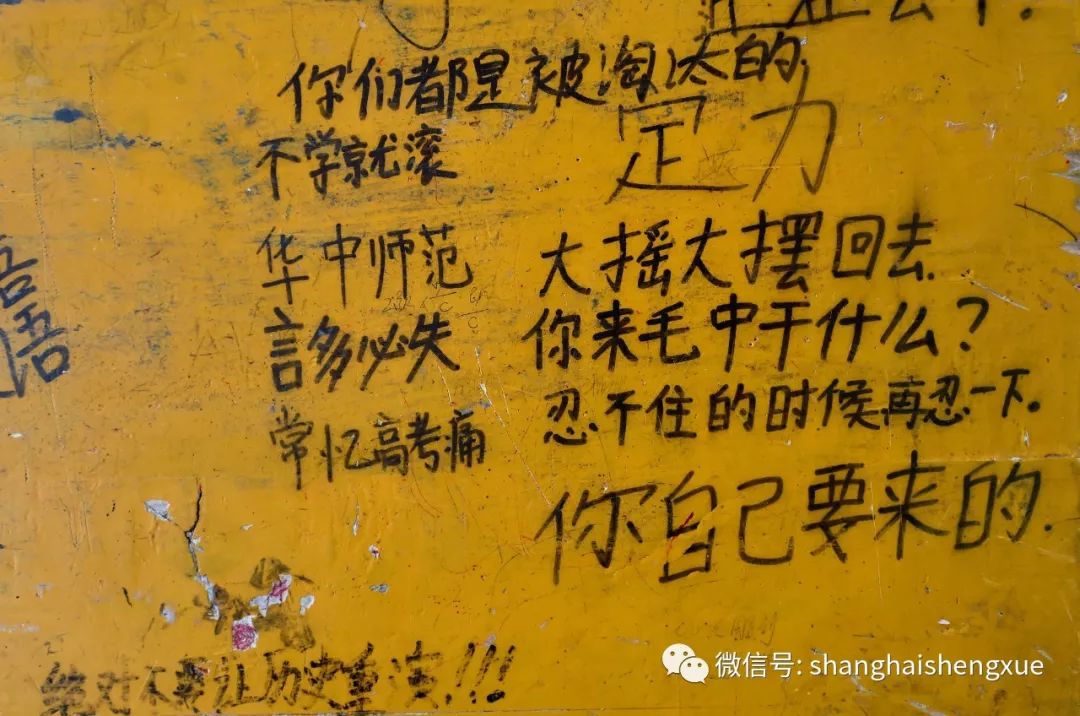 你们都是被淘汰的.
不学就滚
定力
华中师范
言多必失
常忆高考痛
大摇大摆回去.
你来毛中干什么?
忍不住的时候再忍一下。
你自己要来的.
绝对不要让历史重演!!!
微信号: shanghaishengxue